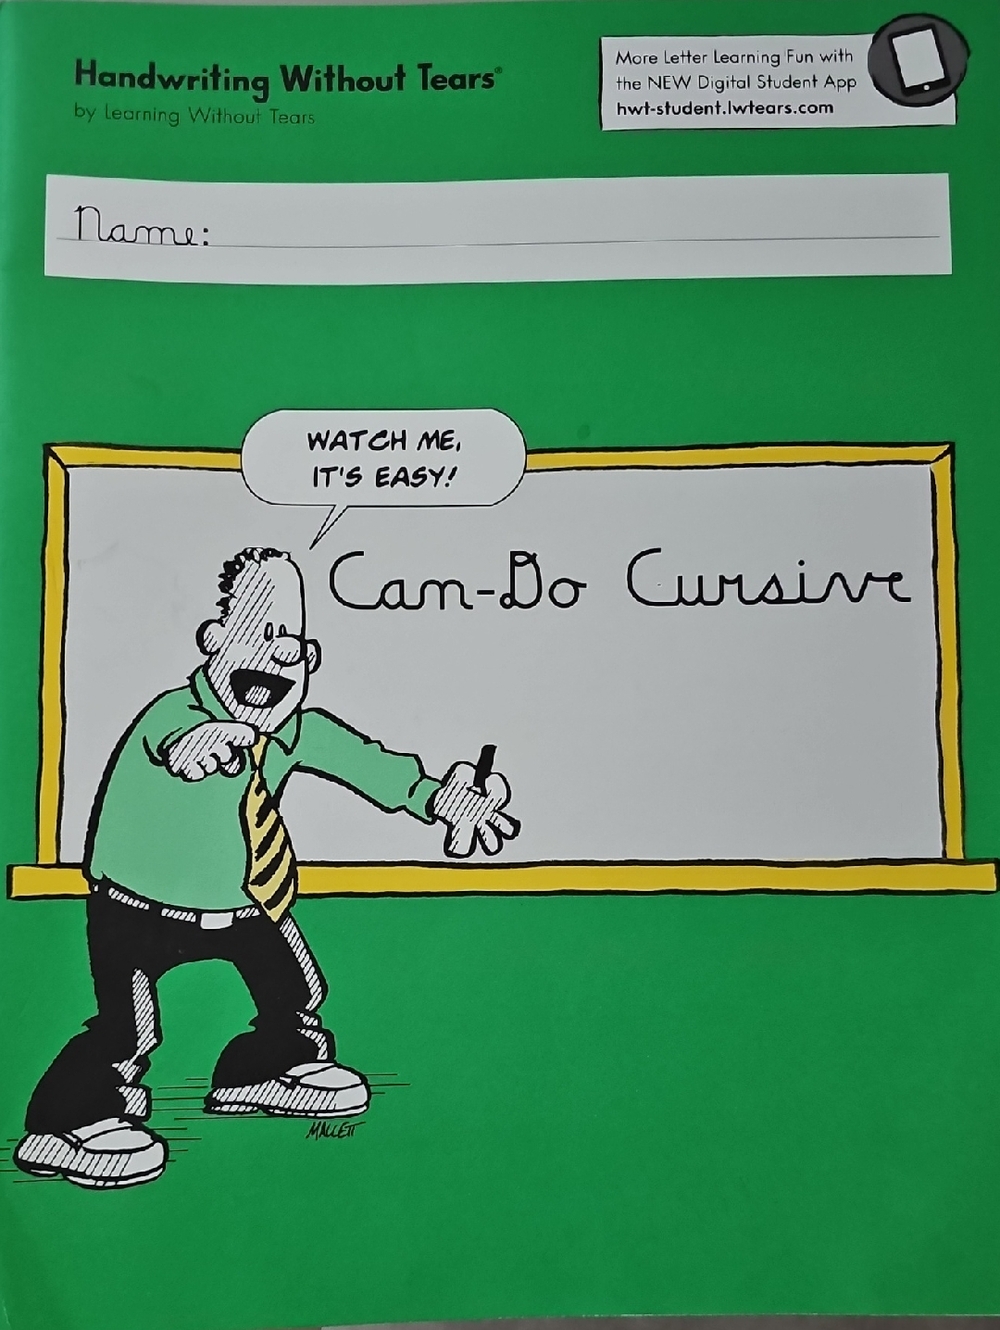 Handwriting Without Tears®
by Learning Without Tears
More Letter Learning Fun with
the NEW Digital Student App
hwt-student.lwtears.com
Name:
WATCH ME,
IT'S EASY!
Can-Do Cursive
MALLETT